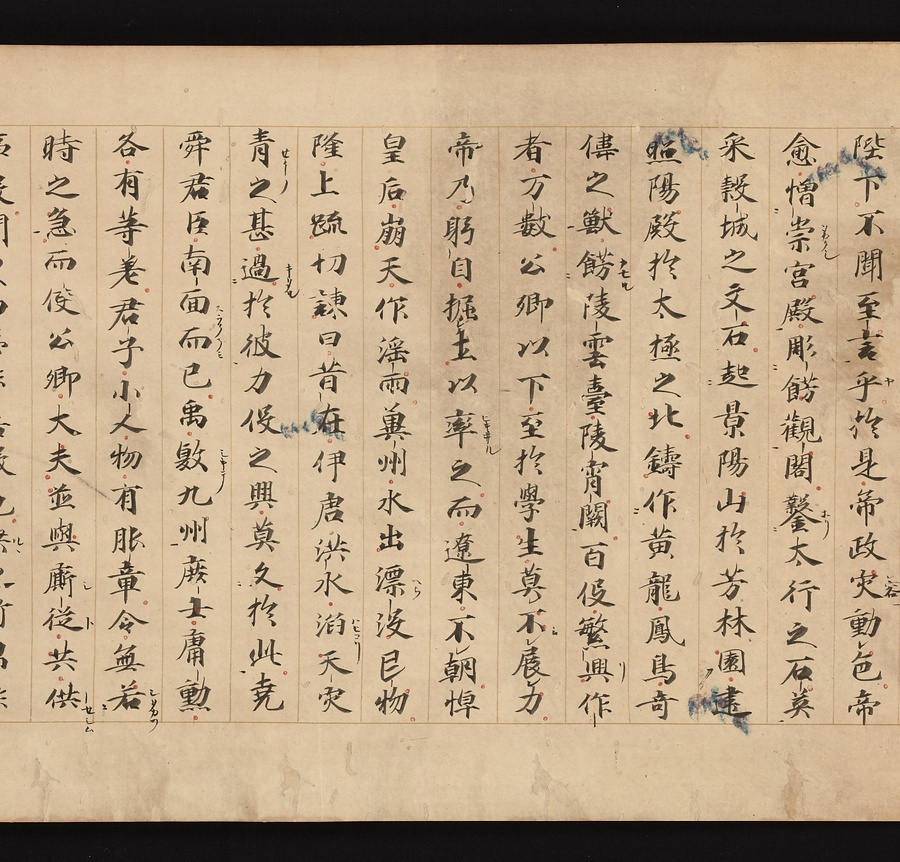 陛下不聞至言乎於是帝政灾動色帝
愈憎崇宮殿彫餝觀閣鑿太行之石英
采穀城之文石起景陽山於芳林園建
照陽殿於太極之北鑄作黃龍鳳鳥奇
偉之獸餝陵雲臺陵霄闕百伇繁興作
者万數公卿以下至於學生莫不展力
帝乃躬自掘土以率之而遼東不朝悼
皇后崩天作淫雨冀州水出漂没巳物
隆上疏切諌曰昔在伊唐洪水滔天灾
青之甚過於彼力伇之興莫久於此堯
舜君臣南面而已禹敷九州庶士庸勳
各有等差君子小人物有服章今無若
時之急而使公卿大夫並與廝從共供